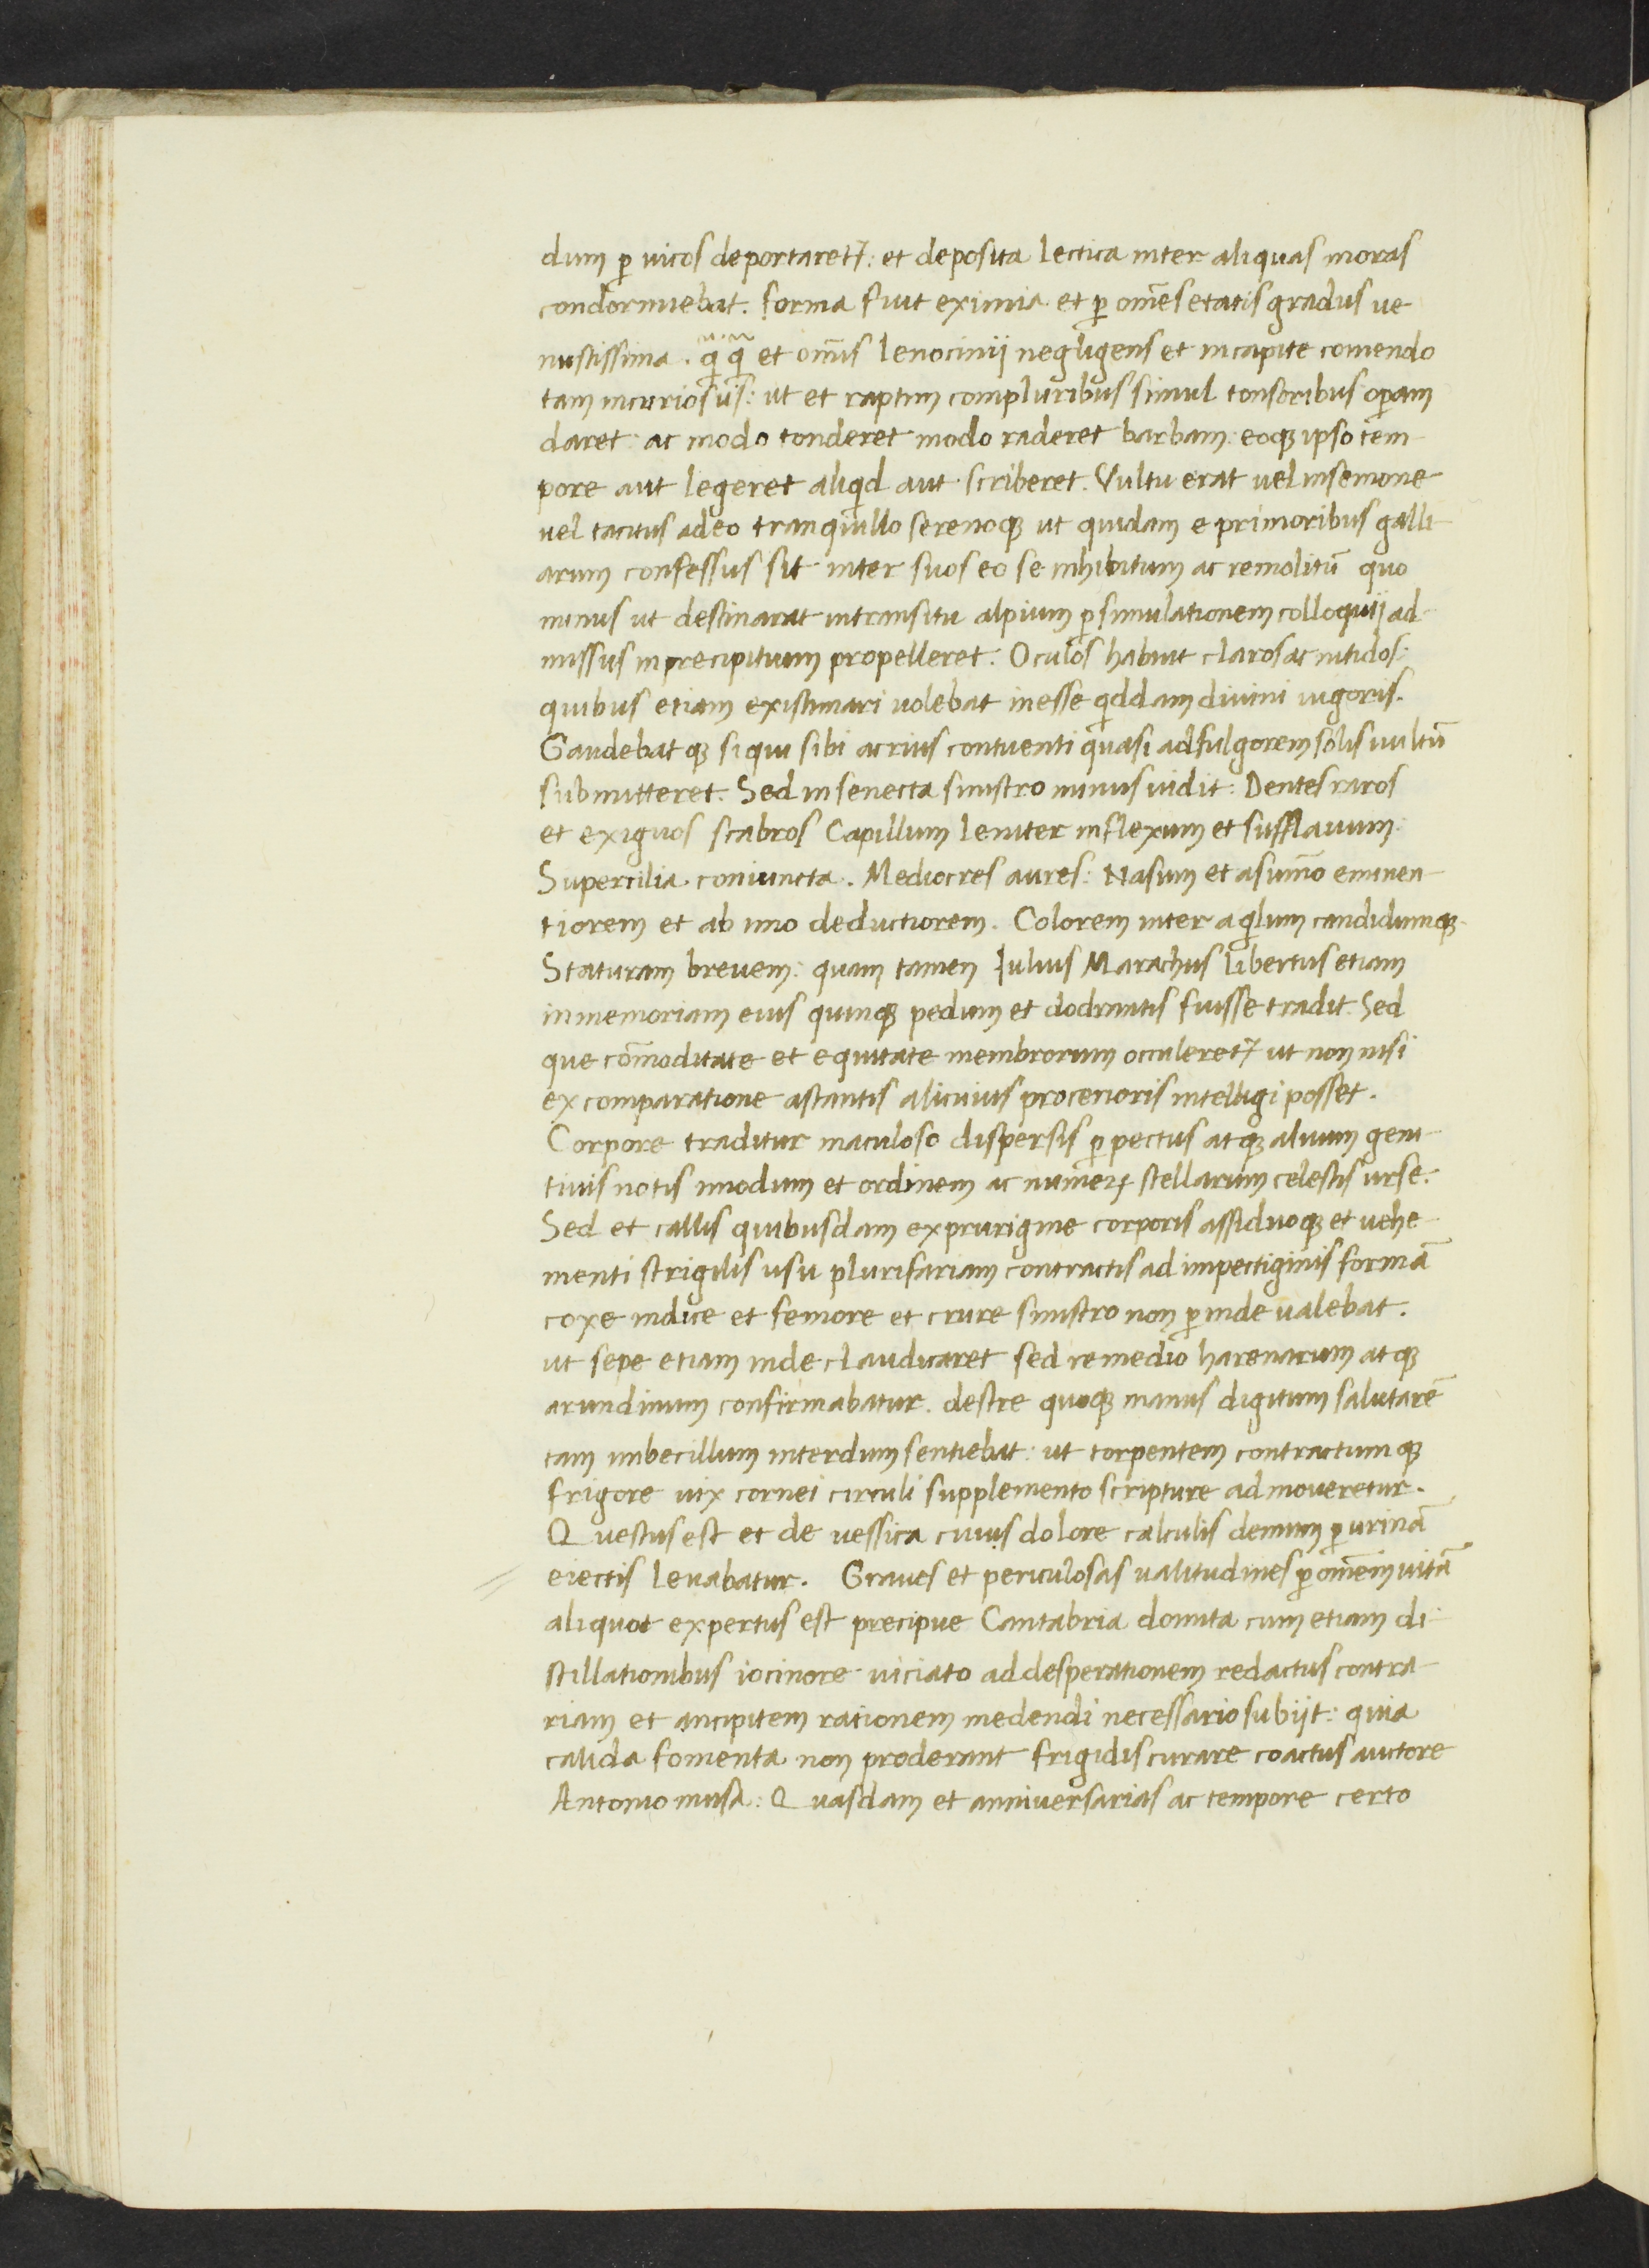 dum ꝑ uicos deportaretꝉ: et deposita lectica inter aliquas moras
condormiebat. forma fuit eximia et ꝑ om̃es etatis gradus ue
nustissima. q̃ q̃ et om̃is lenocinij negligens et in capite comendo
tam incuriosus: ut et raptim compluribus simul tonsoribus oꝑam
daret: ac modo tonderet modo raderet barbam: eoqꝫ ipso tem
pore aut legeret aliqd aut scriberet. Vultu erat uel in sermone
uel tacitus adeo tranquillo serenoqꝫ ut quidam e primoribus galli
arum confessus sit inter suos eo se inhibitum ac remolitū quo
minus ut destinarat in transitu alpium ꝑ simulationem colloquij ad
missus in precipitium propelleret. Oculos habuit claros ac nitidos:
quibus etiam existimari uolebat inesse qddam diuini uigoris.
Gaudebatqꝫ si qui sibi acrius contuenti quasi ad fulgorem solis uultū
submitteret. Sed in senecta sinistro minus uidit: Dentes raros
et exiguos scabros Capillum leniter inflexum et sufflauum:
Supercilia coniuncta. Mediocres aures: Nasum et a sum̃o eminen
tiorem et ab imo deductiorem. Colorem inter aqlum candidumqꝫ
Staturam breuem: quam tamen Julius Marachus libertus etiam
in memoriam eius quinqꝫ pedum et dodrantis fuisse tradit. Sed
que com̃oditate et equitate membrorum occuleretꝉ ut non nisi
ex comparatione astantis alicuius procerioris intelligi posset.
Corpore traditur maculoso dispersis ꝑ pectus atqꝫ aluum geni
tiuis notis in modum et ordinem ac numeꝝ stellarum celestis urse.
Sed et callis quibusdam ex prurigine corporis assiduoqꝫ et uehe
menti strigilis usu plurifariam contractis ad impectiginis formā
coxe indice et femore et crure sinistro non ꝑinde ualebat.
ut sepe etiam inde claudicaret sed remedio harenarum atqꝫ
arundinum confirmabatur. destre quoqꝫ manus digitum salutarē
tam imbecillum interdum sentiebat: ut torpentem contractumqꝫ
frigore uix cornei circuli supplemento scripture admoueretur.
Questus est et de uessica cuius dolore calculis demum ꝑ urinā
eiectis leuabatur. Graues et periculosas ualitudines ꝑ om̃em uitā
aliquot expertus est precipue Cantabria domita cum etiam di
stillationibus iocinore uiciato ad desperationem redactus contra
riam et ancipitem rationem medendi necessario subijt: quia
calida fomenta non proderant frigidis curare coactus auctore
Antonio musa: Quasdam et anniuersarias ac tempore certo